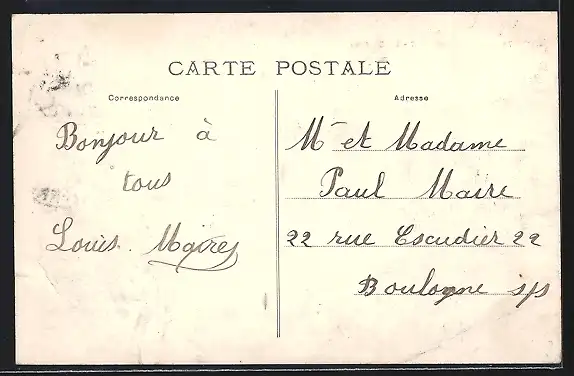 CARTE POSTALE
Correspondance
Adresse
Bonjour à
tous
Louis.
Mr et Madame
Paul Maire
22 rue Escudier 22
Boulogne s/s